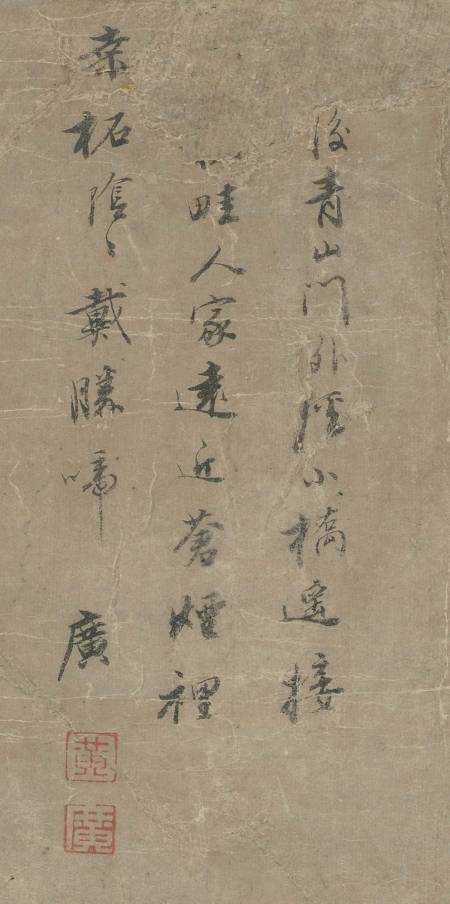 後青山門外溪小橋遙接
畦人家遠近蒼煙裡
桑柘陰〻戴勝啼 廣
廣